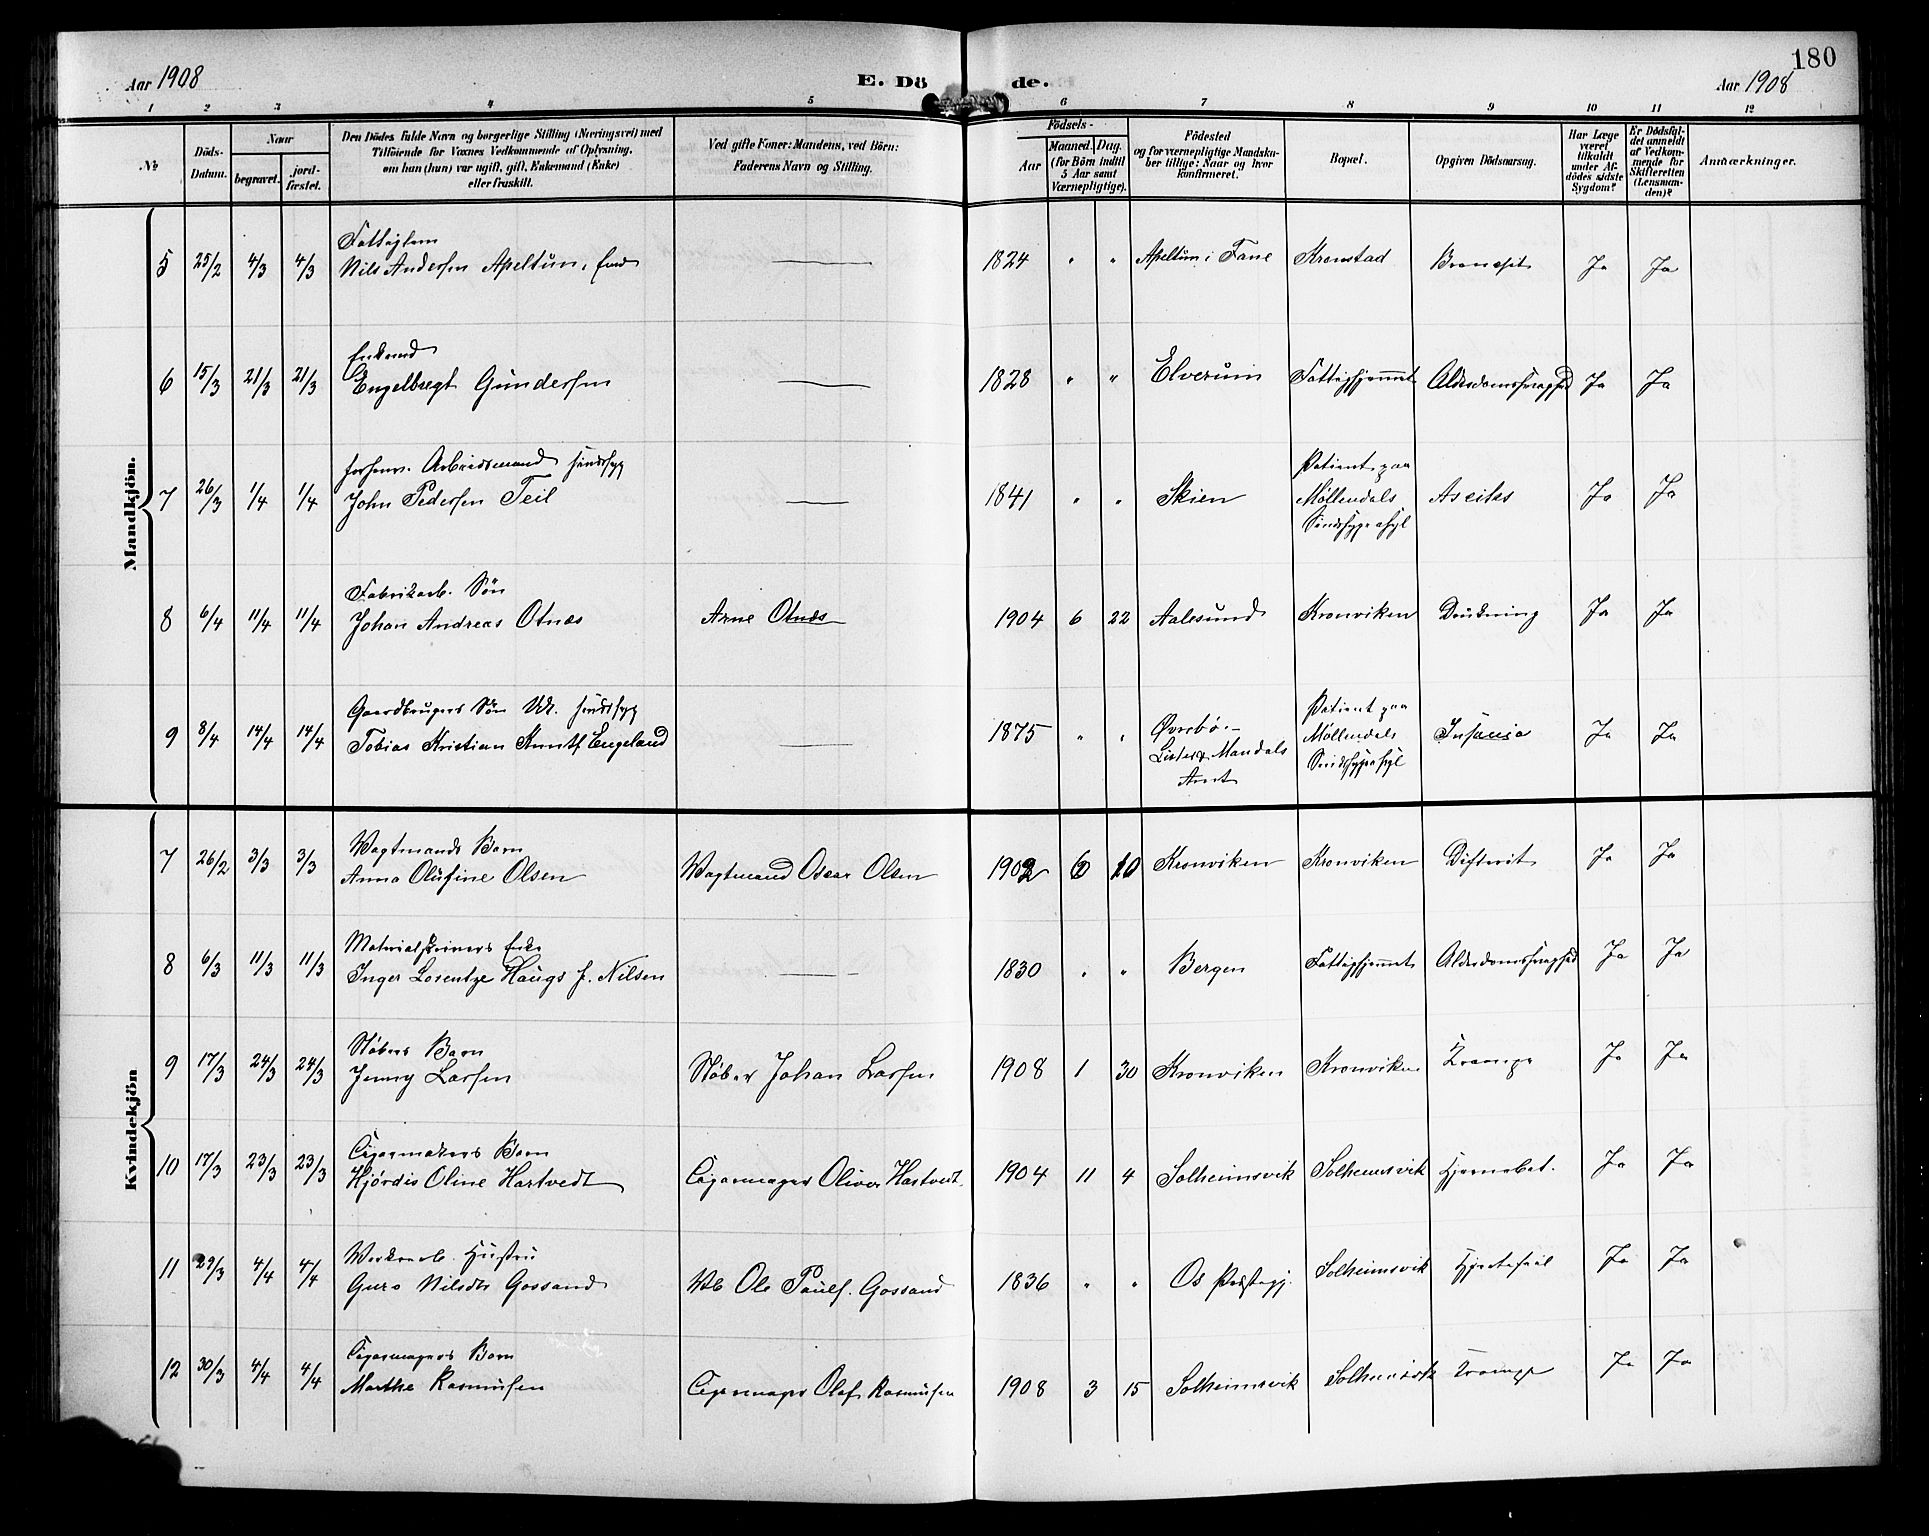 180
Aar 1908 E. Dö de. Aar 1908
1 2 3 4 5 6 7 8 9 10 11 12
No
Döds-Datum.
Naar
begravet.
jordfæstet.
Den Dödes fulde Navn og borgerlige Stilling (Næringsvei) med
Tilföiende for Voxnes Vedkommende af Oplysning,
om han (hun) var ugift, gift, Enkemand (Enke)
eller fraskilt.
Ved gifte Koner: Mandens, ved Börn:
Faderens Navn og Stilling.
Födsels-
Aar
Maaned. Dag.
(for Börn indtil
5 Aar samt
Værnepligtige).
Födested
og for værnepligtige Mandsku-
ber tillige: Naar og hvor
konfirmeret.
Bopæl.
Opgiven Dödsaarsag.
Har Læge
været
tilkaldt
under Af-
dödes sidste
Sygdom?
Er Dödsfal-
det anmeldt
af Vedkom-
mende for
Skifteretten
(Lensman-
den)?
Anmærkninger.
Mandkjön.
Fattiglem
5 25/2 4/3 4/3 Nils Andersen Apeltun, 1824 " " Apeltun i Fane Kronstad Ja Ja
Enkemd
6 15/3 21/3 21/3 Engelbregt Gundersen 1828 " " Elverum Fattighjemmet Alderdomssvaghed Ja Ja
forhenv. Arbeidsmand sindssyg Patient paa
7 26/3 1/4 1/4 John Pedersen Teil 1841 " " Skien Møllendals Ascites Ja Ja
Sindssygeasyl
Fabrikarb. Søn
8 6/4 11/4 11/4 Johan Andreas Otnæs Arne Otnæs 1904 6 22 Aalesund Kronviken Drukning Ja Ja
Gaardbrugers Søn Ug. sindssyg Patient paa
9 8/4 14/4 14/4 Tobias Kristian Knuts. Engeland 1875 " " Øvrebø - Møllendals Insania Ja Ja
Lister & Mandals Sindssygeasyl
Amt
Kvindekjön
Vagtmands Barn
7 26/2 3/3 3/3 Anna Olufine Olsen Vagtmand Oscar Olsen 1902 6 10 Kronviken Kronviken Difterit Ja Ja
Materialskrivers Enke
8 6/3 11/3 11/3 Inger Lorentze Haugs f. Nilsen 1830 " " Bergen Fattighjemmet Alderdomssvaghed Ja Ja
Støbers Barn
9 17/3 24/3 24/3 Jenny Larsen Støber Johan Larsen 1908 1 30 Kronviken Kronviken Krampe Ja Ja
Cigarmakers Barn
10 17/3 23/3 23/3 Hjørdis Oline Hartvedt Cigarmager Oliver Hartvedt. 1904 11 4 Solheimsvik Solheimsvik Hjernebet. Ja Ja
Verksarb. Hustru
11 29/3 4/4 4/4 Guro Nilsdtr Gossand Vb Ole Pauls. Gossand 1836 " " Os Præstegj. Solheimsvik Hjertefeil Ja Ja
Cigarmagers Barn
12 30/3 4/4 4/4 Marthe Rasmusen Cigarmager Olaf Rasmusen 1908 3 15 Solheimsvik Solheimsvik Krampe Ja Ja